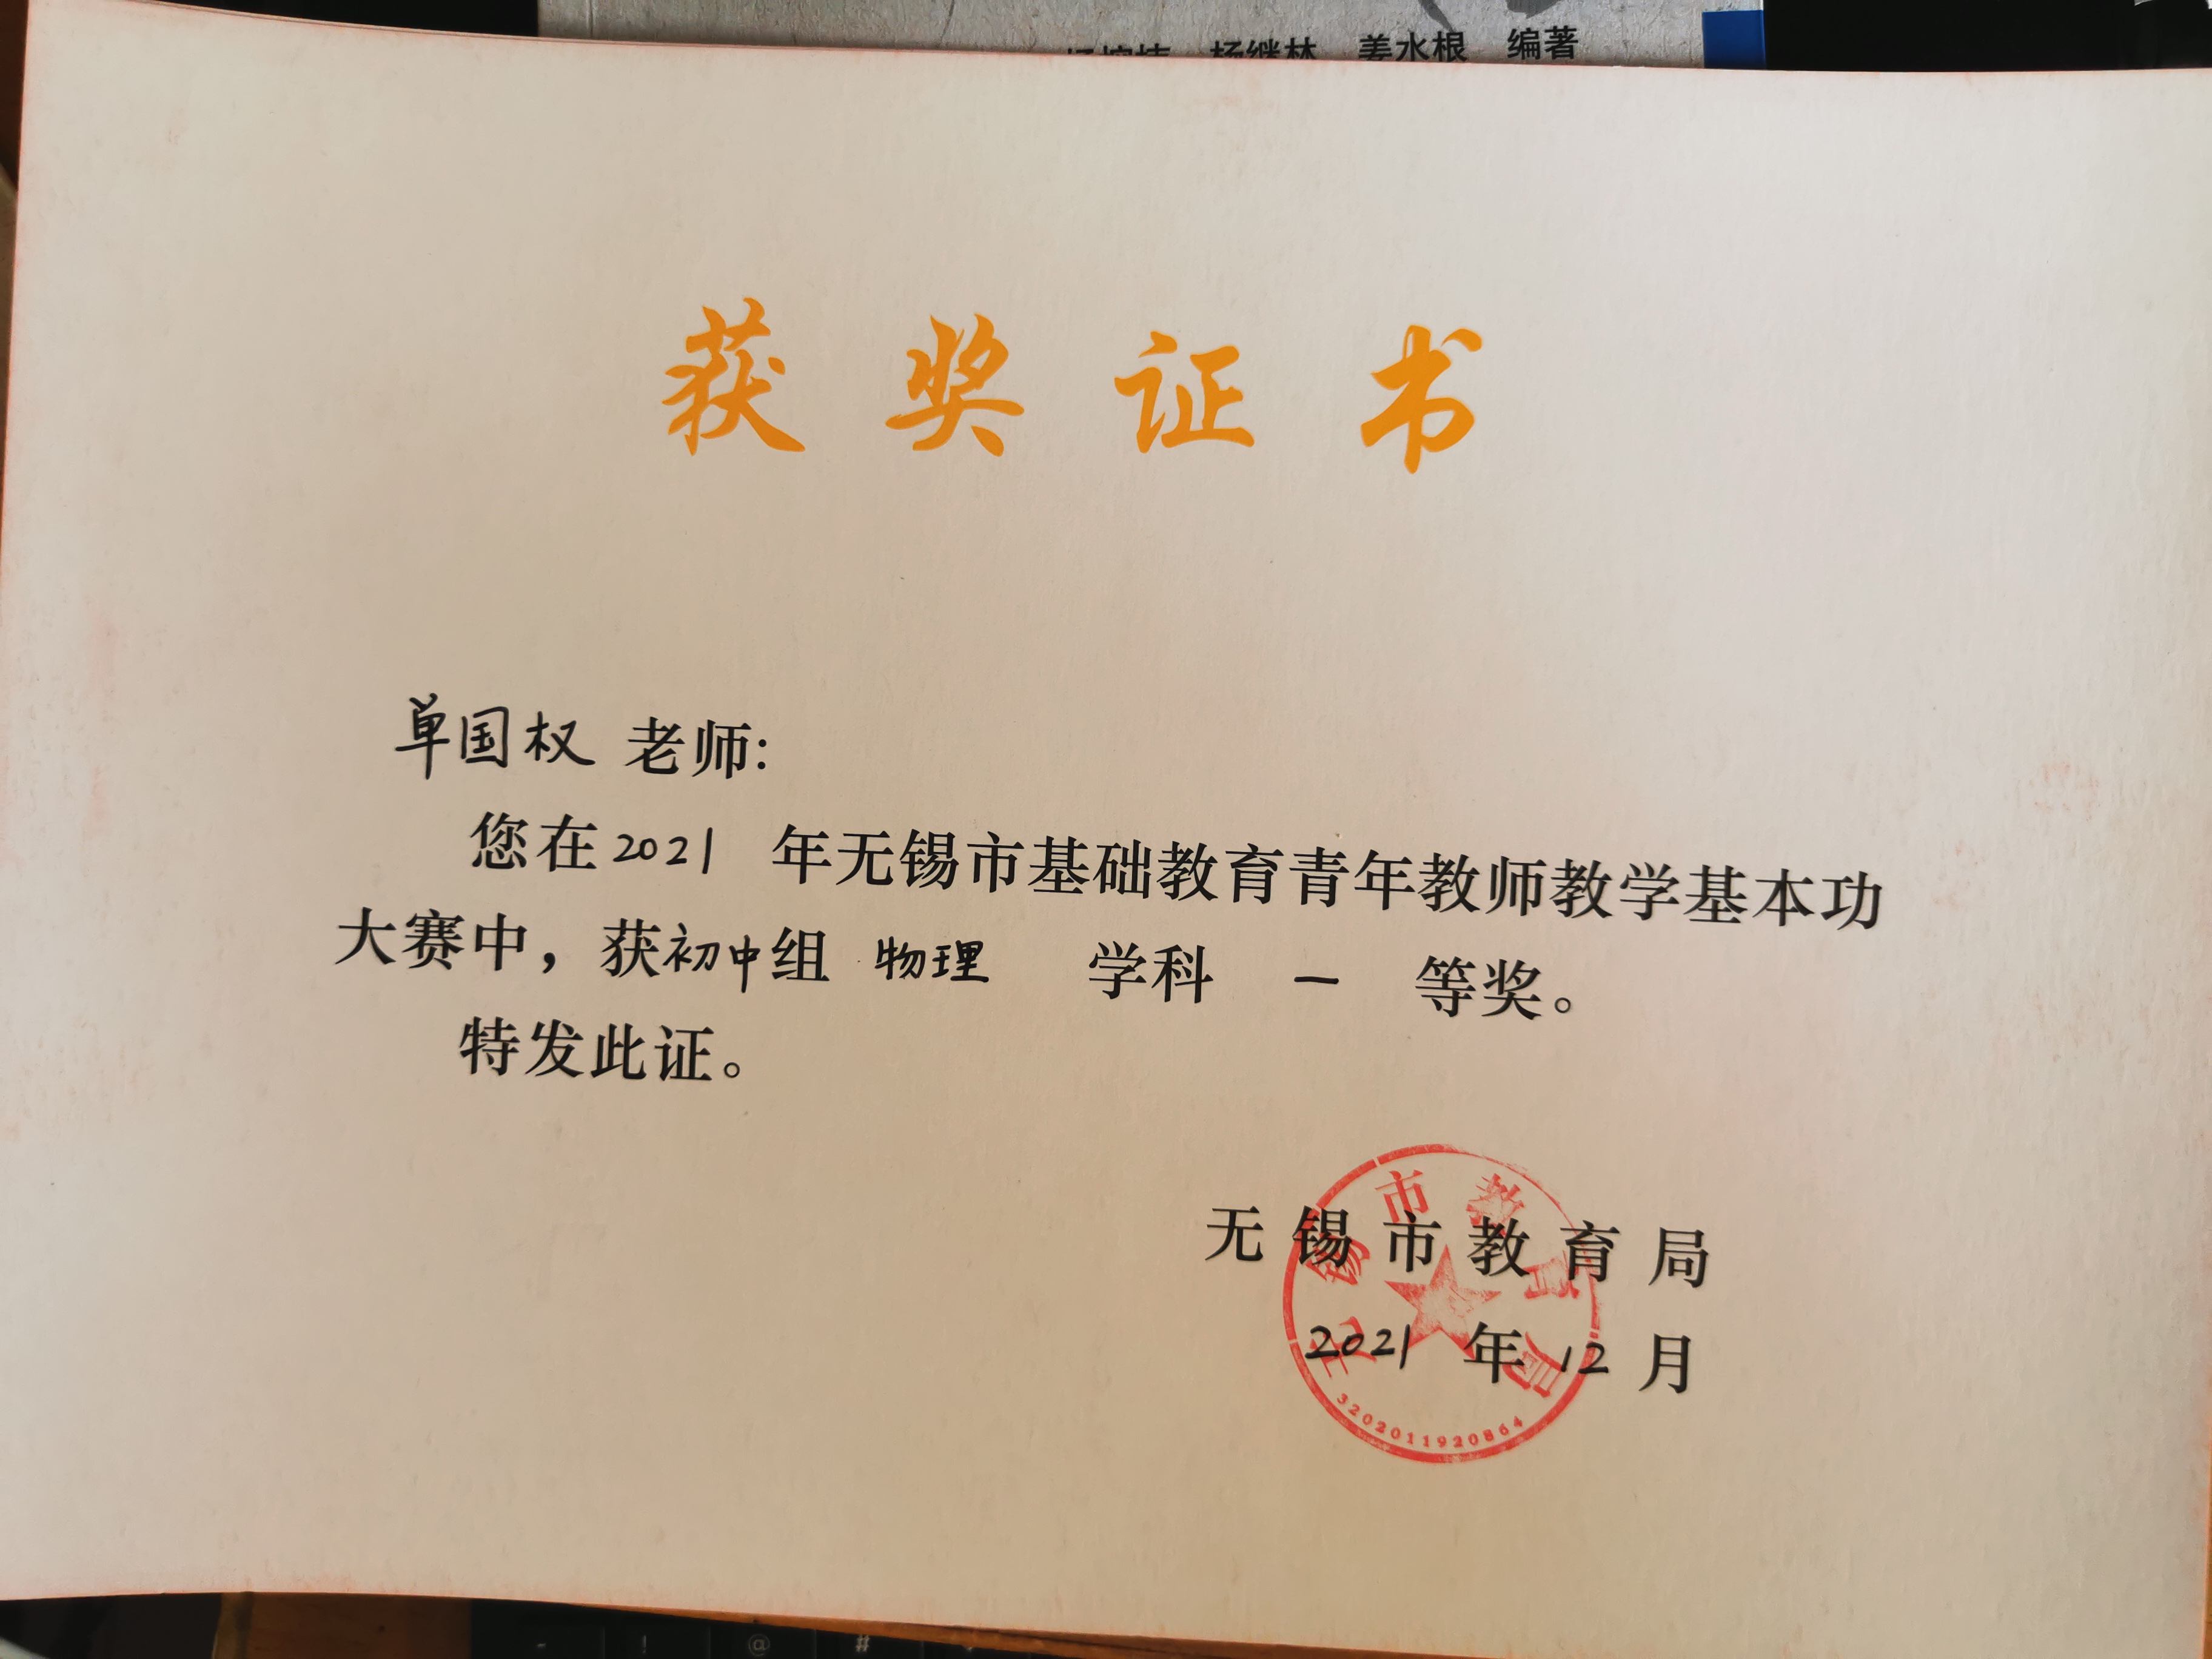 杨继林 姜水根 编著
获奖证书
单国权 老师:
您在2021 年无锡市基础教育青年教师教学基本功
大赛中，获初中组 物理 学科 一 等奖。
特发此证。
无锡市教育局
2021 年 12 月
无锡市教育局
3202011920864
! @ #